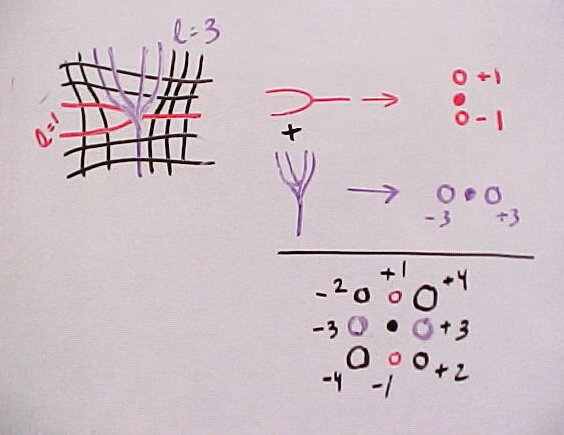 ℓ=3
ℓ=1
→ +1
-1
+
→ -3 +3
-2 +1 +4
-3 +3
-4 -1 +2